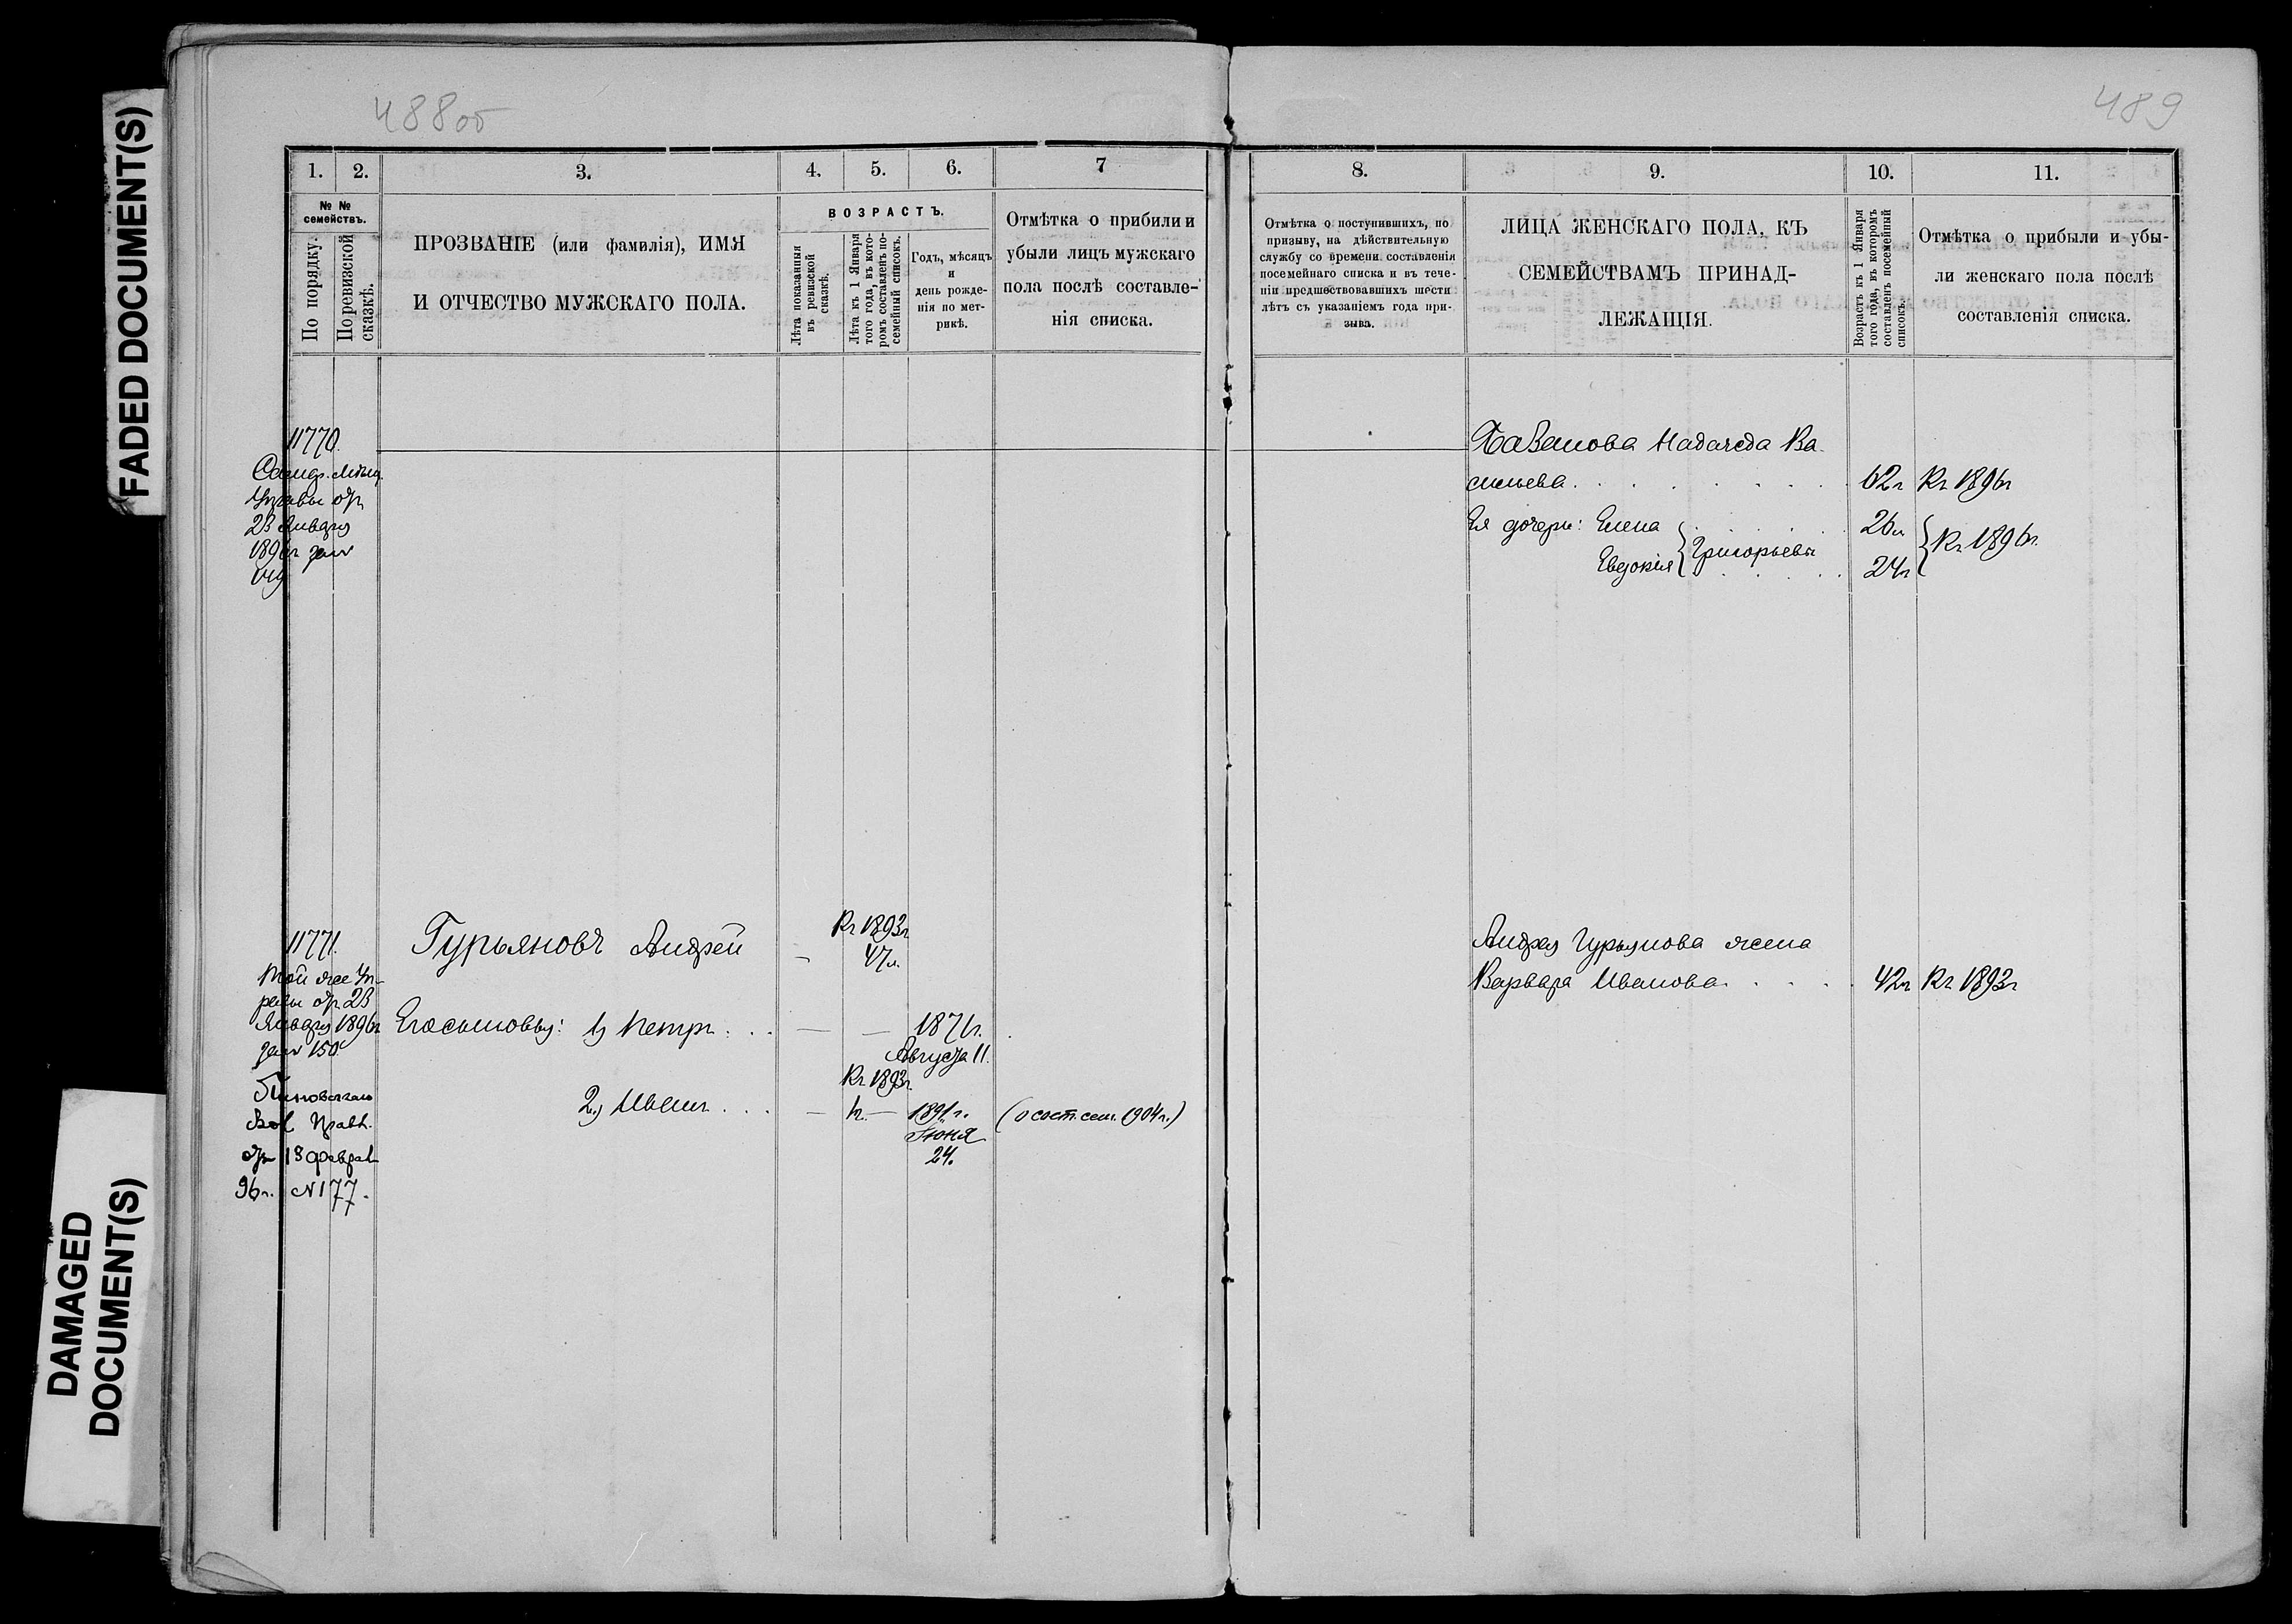 FADED DOCUMENT(S)
DAMAGED
DOCUMENT(S)
488об
1. 2. 3. 4. 5. 6. 7
№ №
семействъ.
По порядку.
По ревизской
сказкѣ.
ПРОЗВАНІЕ (или фамилія), ИМЯ
И ОТЧЕСТВО МУЖСКАГО ПОЛА.
ВОЗРАСТЪ.
Лѣта показанныя
въ ревизской
сказкѣ.
Лѣта къ 1 Января
того года, въ кото-
ромъ составленъ по-
семейный списокъ.
Годъ, мѣсяцъ
и
день рожде-
нія по мет-
рикѣ.
Отмѣтка о прибили и
убыли лицъ мужскаго
пола послѣ составле-
нія списка.
11770.
Управы от
23 Января
1896г
149
11771.
Той же Уп-
равы от 23
Января 1896г
150
Вол Правл.
от 13 феврал
96г. № 177.
Гурьяновъ Андрей
Къ 1893г
47л.
1) Петръ . . .
— — 1871г.
Августа 11.
Къ 1893г
2) Иванъ . . .
1891г.
Іюня
24.
(о сост. сем. 1904г.)
489
8. 9. 10. 11.
Отмѣтка о поступившихъ, по
призыву, на дѣйствительную
службу со времени составленія
посемейнаго списка и въ тече-
ніи предшествовавшихъ шести
лѣтъ съ указаніемъ года при-
зыва.
ЛИЦА ЖЕНСКАГО ПОЛА, КЪ
СЕМЕЙСТВАМЪ ПРИНАД-
ЛЕЖАЩІЯ.
Возрастъ къ 1 Января
того года, въ которомъ
составленъ посемейный
списокъ.
Отмѣтка о прибыли и убы-
ли женскаго пола послѣ
составленія списка.
Надежда Ва
сильева . . . 62г Къ 1896г
Ея дочери: Елена 26л
Евдокія Григорьевы 24г Къ 1896г.
Андрея Гурьянова жена
Варвара Иванова. . . . 42г Къ 1893г